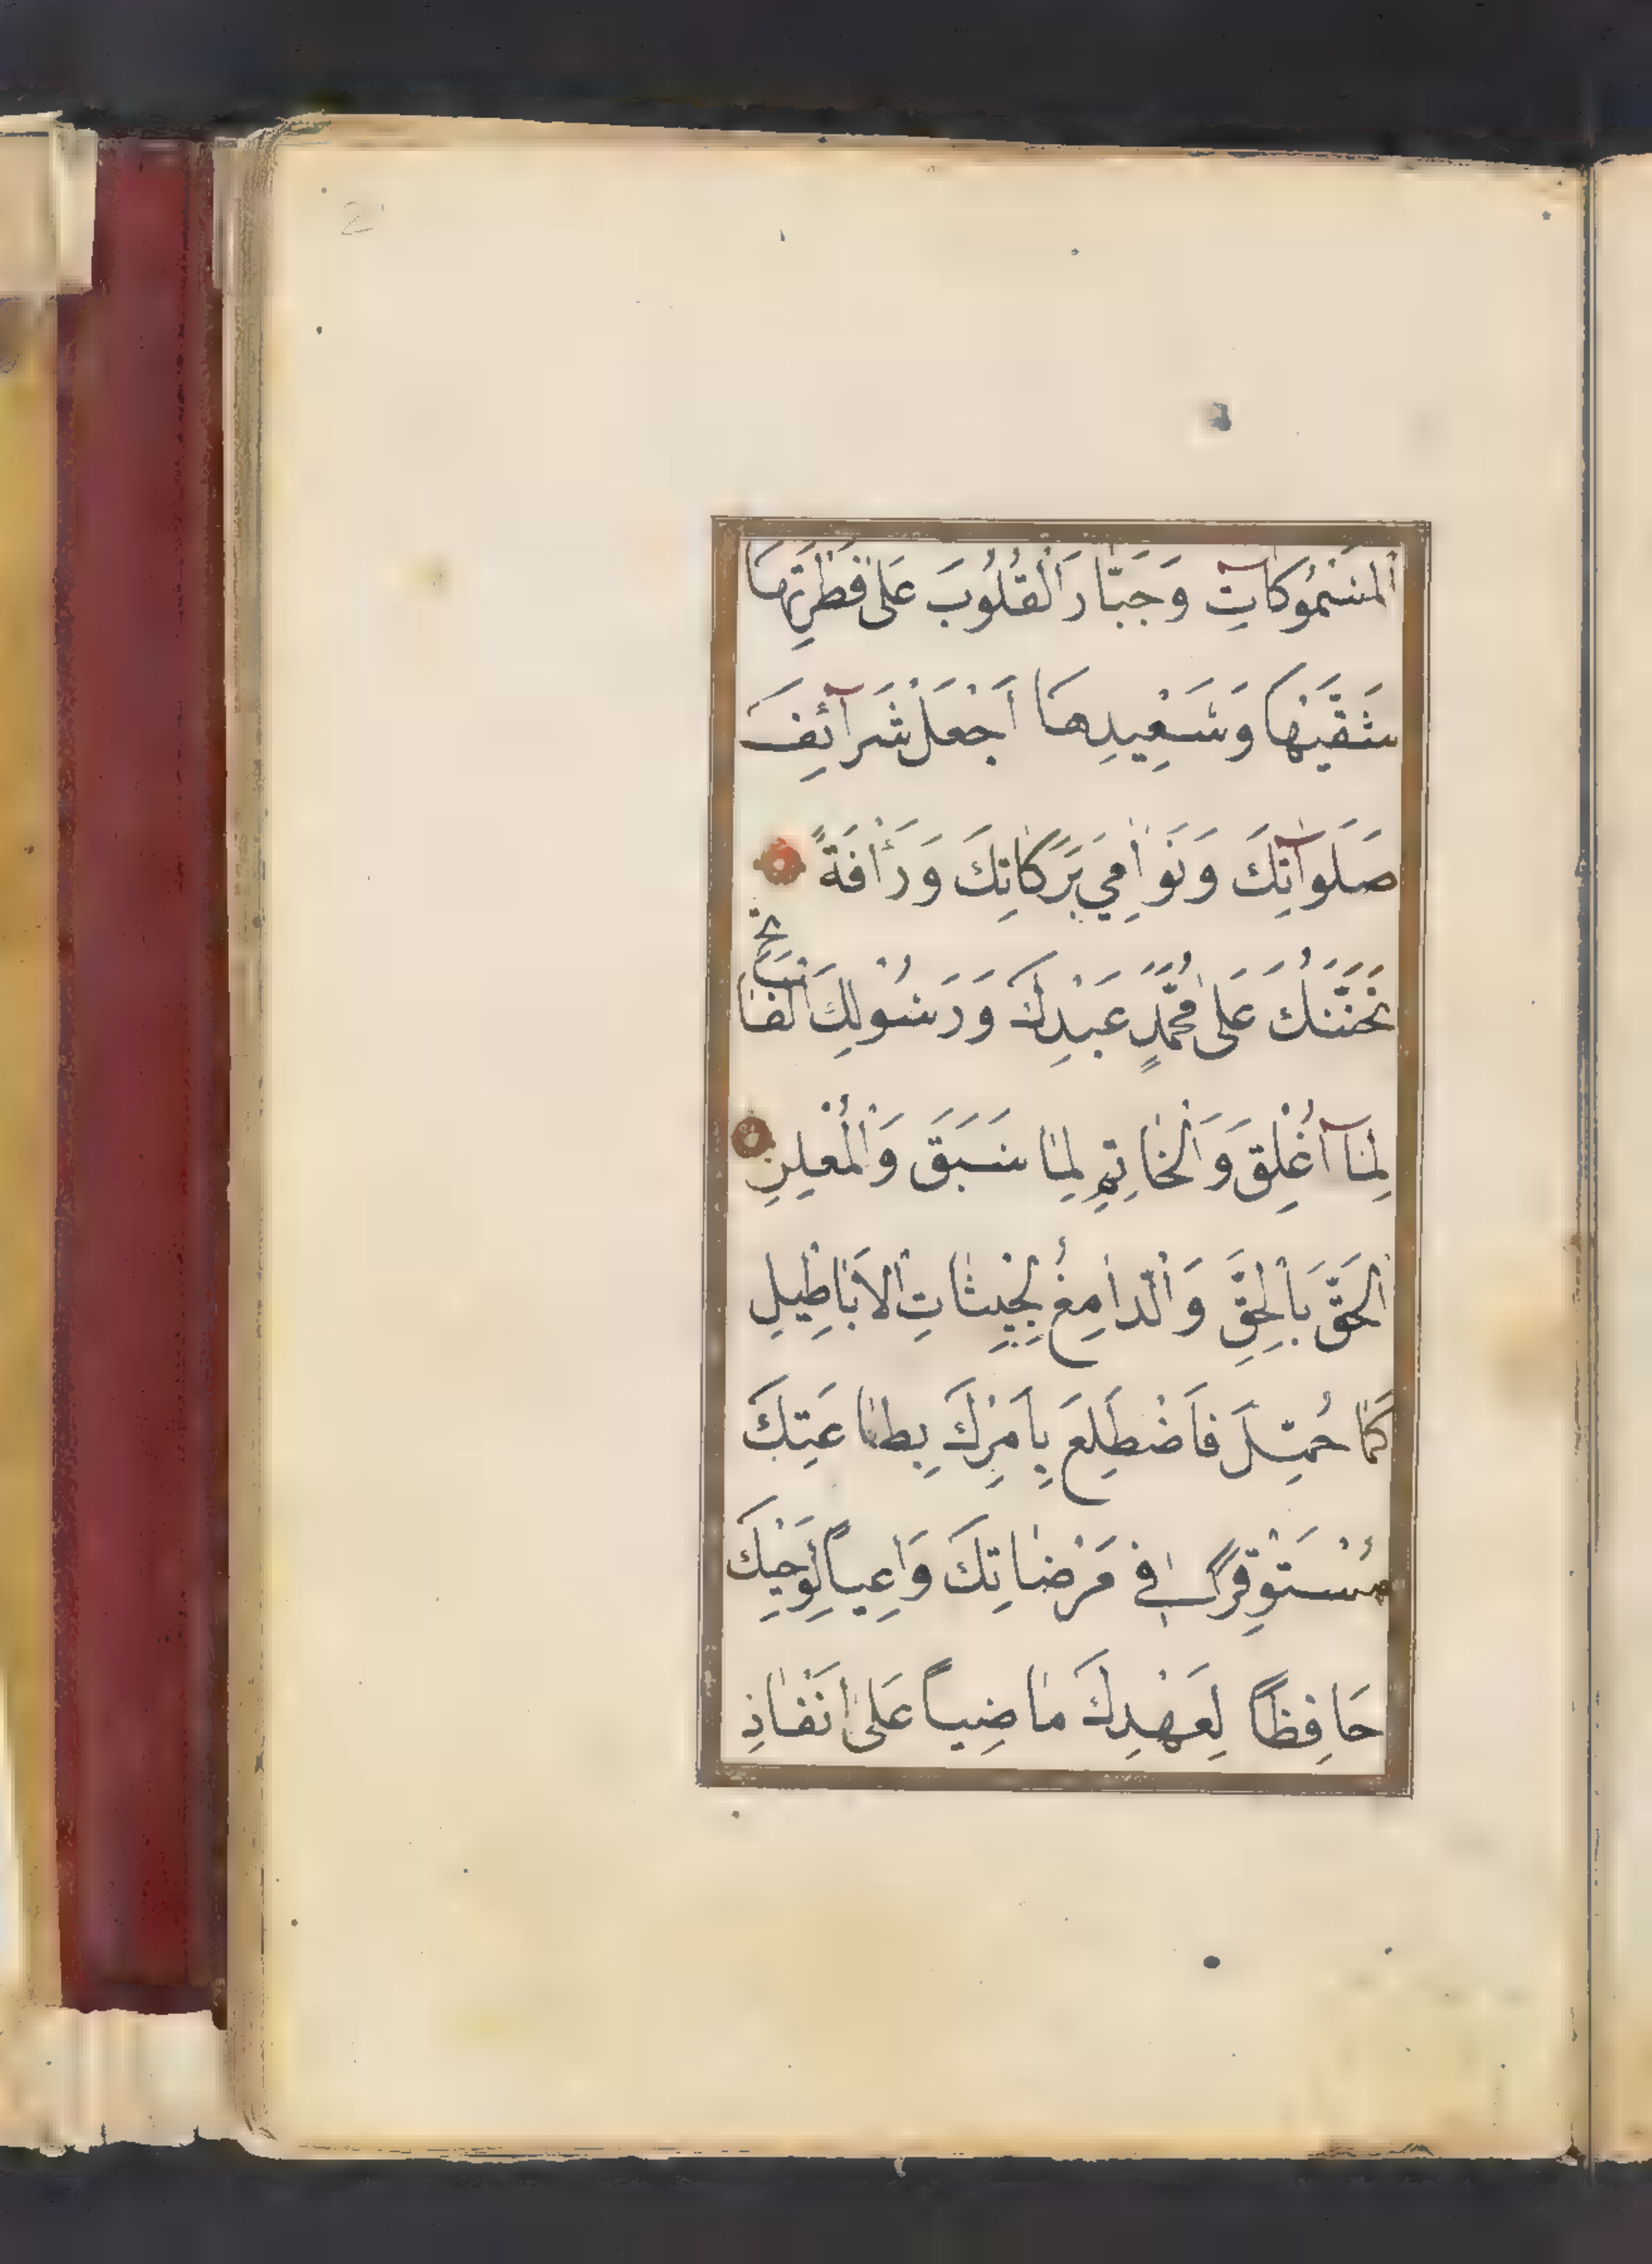 2
الْمَسْمُوكَاتِ وَجَبَّارَ الْقُلُوبَ عَلَى فِطْرَتِهَا
شَقِيِّهَا وَسَعِيدِهَا اَجْعَلْ شَرَآئِفَ
صَلَوَاتِكَ وَنَوَامِيَ بَرَكَاتِكَ وَرَأْفَةً
تَحَنُّنِكَ عَلَى مُحَمَّدٍ عَبْدِكَ وَرَسُولِكَ الْفَاتِحِ
لِمَآ اُغْلِقَ وَالْخَاتِمِ لِمَا سَبَقَ وَالْمُعْلِنِ
الْحَقَّ بِالْحَقِّ وَالدَّامِغُ لِجَيْشَاتِ الْاَبَاطِيلِ
كَمَا حُمِّلَ فَاضْطَلَعَ بِاَمْرِكَ بِطَاعَتِكَ
مُسْتَوْفِزًا فِي مَرْضَاتِكَ وَاعِياً لِوَحْيِكَ
حَافِظًا لِعَهْدِكَ مَاضِياً عَلَى اَنْفَاذِ